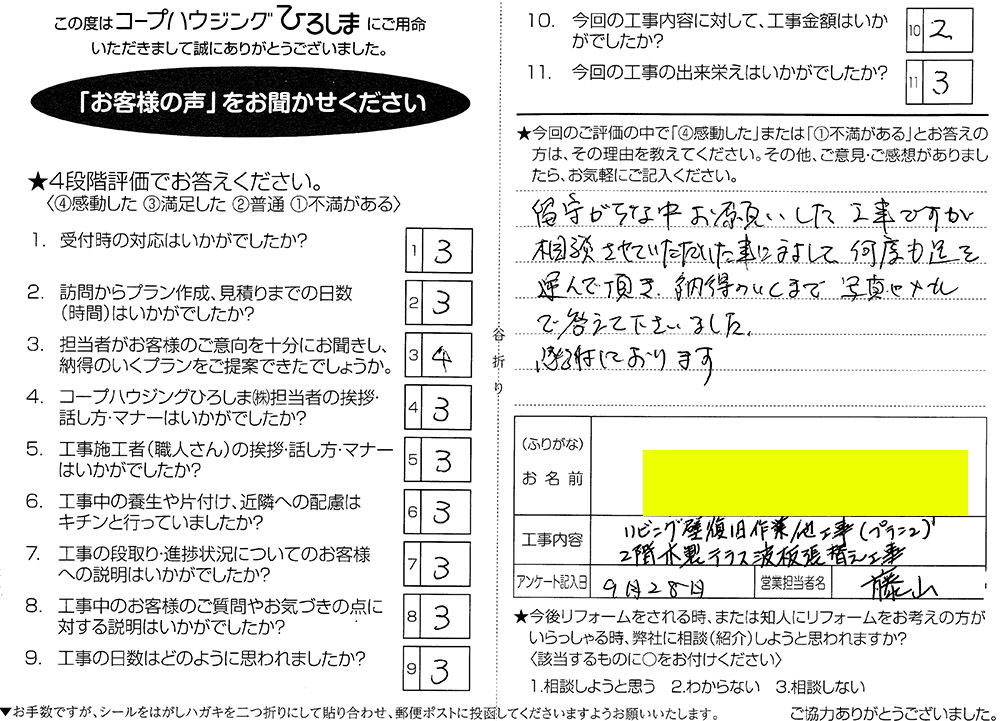 この度はコープハウジングひろしまにご用命
いただきまして誠にありがとうございました。
「お客様の声」をお聞かせください
★4段階評価でお答えください。
〈④感動した ③満足した ②普通 ①不満がある〉
1. 受付時の対応はいかがでしたか?
1 3
2. 訪問からプラン作成、見積りまでの日数
(時間)はいかがでしたか?
2 3
3. 担当者がお客様のご意向を十分にお聞きし、
納得のいくプランをご提案できたでしょうか。
3 4
4. コープハウジングひろしま㈱担当者の挨拶・
話し方・マナーはいかがでしたか?
4 3
5. 工事施工者(職人さん)の挨拶・話し方・マナー
はいかがでしたか?
5 3
6. 工事中の養生や片付け、近隣への配慮は
キチンと行っていましたか?
6 3
7. 工事の段取り・進捗状況についてのお客様
への説明はいかがでしたか?
7 3
8. 工事中のお客様のご質問やお気づきの点に
対する説明はいかがでしたか?
8 3
9. 工事の日数はどのように思われましたか?
9 3
▼お手数ですが、シールをはがしハガキを二つ折りにして貼り合わせ、郵便ポストに投函してくださいますようお願いいたします。
谷折り
10. 今回の工事内容に対して、工事金額はいか
がでしたか?
10 2
11. 今回の工事の出来栄えはいかがでしたか?
11 3
★今回のご評価の中で「④感動した」または「①不満がある」とお答えの
方は、その理由を教えてください。その他、ご意見・ご感想がありまし
たら、お気軽にご記入ください。
留守がちな中お願いした工事ですが
相談させていただいた事にまして何度も足を
運んで頂き、納得のいくまで写真やメール
で答えて下さいました。
感謝しております
(ふりがな)
お名前
工事内容
リビング壁復旧作業他工事(プラン2)
2階木製テラス波板張替え工事
アンケート記入日 9月28日 営業担当者名 藤山
★今後リフォームをされる時、または知人にリフォームをお考えの方が
いらっしゃる時、弊社に相談(紹介)しようと思われますか?
〈該当するものに○をお付けください〉
1.相談しようと思う 2.わからない 3.相談しない
ご協力ありがとうございました。